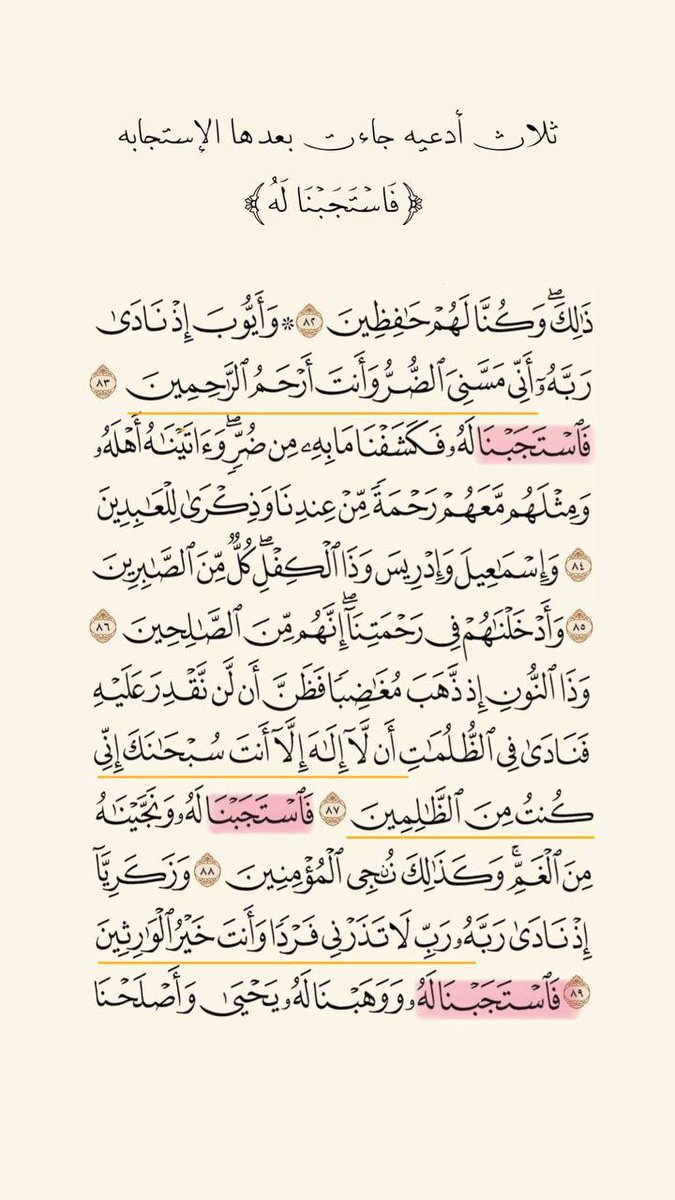 ثلاث أدعيه جاءت بعدها الإستجابه
﴿فَاسْتَجَبْنَا لَهُ﴾
ذَٰلِكَۖ وَكُنَّا لَهُمْ حَٰفِظِينَ ٨٢ ۞ وَأَيُّوبَ إِذْ نَادَىٰ
رَبَّهُۥٓ أَنِّي مَسَّنِيَ ٱلضُّرُّ وَأَنتَ أَرْحَمُ ٱلرَّٰحِمِينَ ٨٣
فَٱسْتَجَبْنَا لَهُۥ فَكَشَفْنَا مَا بِهِۦ مِن ضُرّٖۖ وَءَاتَيْنَٰهُ أَهْلَهُۥ
وَمِثْلَهُم مَّعَهُمْ رَحْمَةٗ مِّنْ عِندِنَا وَذِكْرَىٰ لِلْعَٰبِدِينَ
٨٤ وَإِسْمَٰعِيلَ وَإِدْرِيسَ وَذَا ٱلْكِفْلِۖ كُلّٞ مِّنَ ٱلصَّٰبِرِينَ
٨٥ وَأَدْخَلْنَٰهُمْ فِي رَحْمَتِنَآۖ إِنَّهُم مِّنَ ٱلصَّٰلِحِينَ ٨٦
وَذَا ٱلنُّونِ إِذ ذَّهَبَ مُغَٰضِبٗا فَظَنَّ أَن لَّن نَّقْدِرَ عَلَيْهِ
فَنَادَىٰ فِي ٱلظُّلُمَٰتِ أَن لَّآ إِلَٰهَ إِلَّآ أَنتَ سُبْحَٰنَكَ إِنِّي
كُنتُ مِنَ ٱلظَّٰلِمِينَ ٨٧ فَٱسْتَجَبْنَا لَهُۥ وَنَجَّيْنَٰهُ
مِنَ ٱلْغَمِّۚ وَكَذَٰلِكَ نُـۨجِي ٱلْمُؤْمِنِينَ ٨٨ وَزَكَرِيَّآ
إِذْ نَادَىٰ رَبَّهُۥ رَبِّ لَا تَذَرْنِي فَرْدٗا وَأَنتَ خَيْرُ ٱلْوَٰرِثِينَ
٨٩ فَٱسْتَجَبْنَا لَهُۥ وَوَهَبْنَا لَهُۥ يَحْيَىٰ وَأَصْلَحْنَا